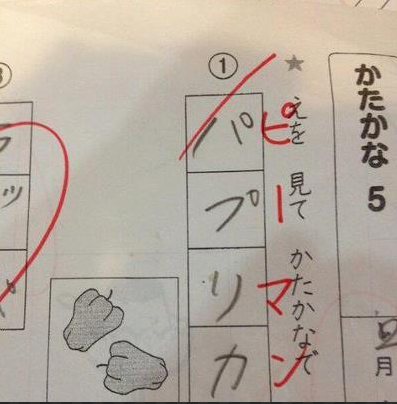 かたかな 5
月
★ えを 見て かたかなで
ピーマン
①
パプリカ
ッ